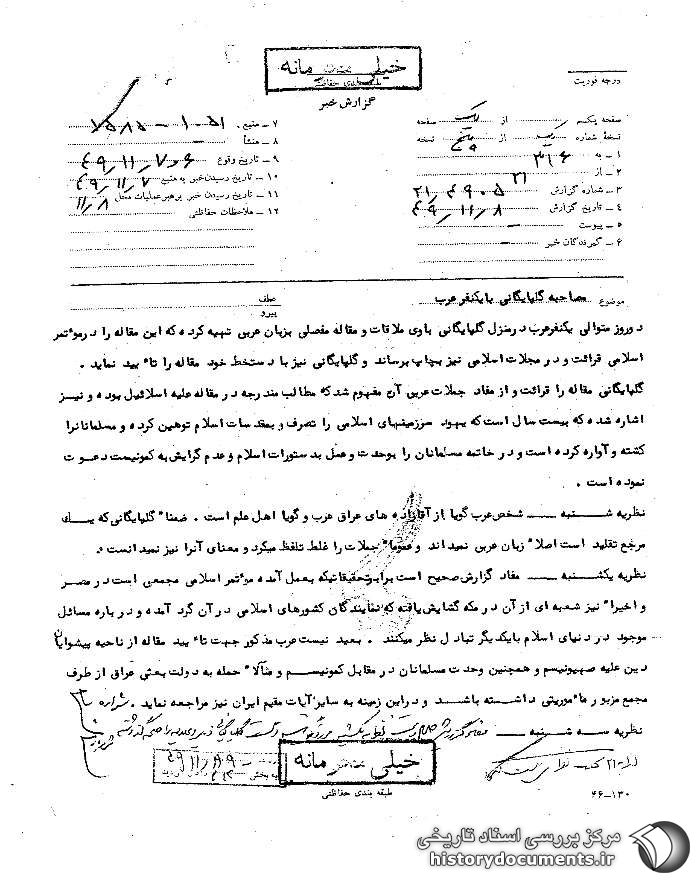 خیلی محرمانه
طبقه بندی حفاظتی
گزارش خبر
درجه فوریت
صفحه یکم از یک صفحه
نسخه شماره یک از پنج نسخه
۱ ـ به ۳۱۶
۲ ـ از ۲۱
۳ ـ شماره گزارش ۲۱/۴۹۰۵
۴ ـ تاریخ گزارش ۴۹/۱۱/۸
۵ ـ پیوست –
۶ ـ گیرندگان خبر –
۷ ـ منبع
۸ ـ منشأ –
۹ ـ تاریخ وقوع ۴۹/۱۱/۷و۶
۱۰ ـ تاریخ رسیدن خبر به منبع ۴۹/۱۱/۷
۱۱ ـ تاریخ رسیدن خبر برهبر عملیات محل ۱۱/۸
۱۲ ـ ملاحظات حفاظتی
موضوع مصاحبه گلپایگانی بایکنفر عرب
عطف
پیرو
دوروز متوالی یکنفر عرب درمنزل گلپایگانی باوی ملاقات و مقاله مفصلی بزبان عربی تهیه کرده که این مقاله را درموٴتمر
اسلامی قرائت و در مجلات اسلامی نیز بچاپ برساند و گلپایگانی نیز با دستخط خود مقاله را تاٴیید نماید .
گلپایگانی مقاله را قرائت و از مفاد جملات عربی آن مفهوم شد که مطالب مندرجه در مقاله علیه اسلائیل بوده و نیز
اشاره شده که بیست سال است که یهود سرزمینهای اسلامی را تصرف و بمقدسات اسلام توهین کرده و مسلمانانرا
کشته و آواره کرده است و در خاتمه مسلمانان را بوحدت و عمل بدستورات اسلام و عدم گرایش به کمونیست دعوت
نموده است .
نظریه شنبه ـ شخص عرب گویا از آقازاده های عراق عرب و گویا اهل علم است . ضمناً گلپایگانی که یک
مرجع تقلید است اصلاً زبان عربی نمیداند و عموماً جملات را غلط تلفظ میکرد و معنای آنرا نیز نمیدانست .
نظریه یکشنبه ـ مفاد گزارش صحیح است برابر تحقیقاتیکه بعمل آمده موٴتمر اسلامی مجمعی است در مصر
و اخیراً نیز شعبه ای از آن در مکه گشایش یافته که نمایندگان کشورهای اسلامی در آن گرد آمده و درباره مسائل
موجود در دنیای اسلام بایکدیگر تبادل نظر میکنند . بعید نیست عرب مذکور جهت تاٴیید مقاله از ناحیه پیشوایان
دین علیه صهیونیسم و همچنین وحدت مسلمانان در مقابل کمونیسم و مآلاً حمله به دولت بعثی عراق از طرف
مجمع مزبور ماٴموریتی داشته باشند و در این زمینه به سایر آیات مقیم ایران نیز مراجعه نماید .
نظریه سه شنبه ـ
خیلی محرمانه
طبقه بندی حفاظتی
۴۶-۱۳۰
مرکز بررسی اسناد تاریخی
historydocuments.ir